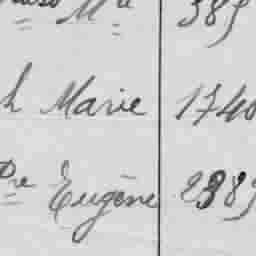 Mie 385
h Marie 1740
Pre Eugène 2389